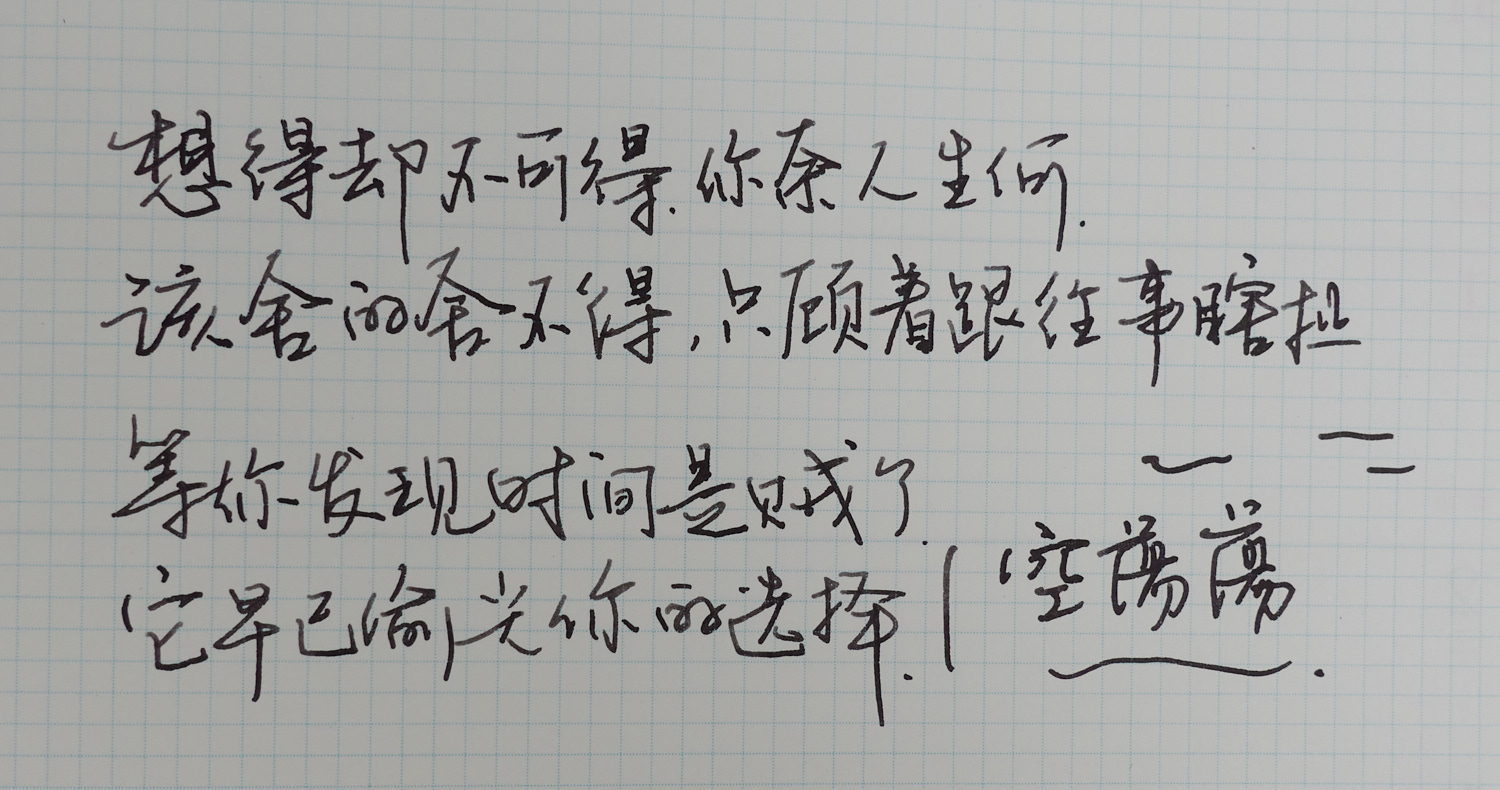 想得却不可得.你奈人生何.
该舍的舍不得,只顾着跟往事瞎扯
等你发现时间是贼了.
它早已偷光你的选择.
空荡荡.